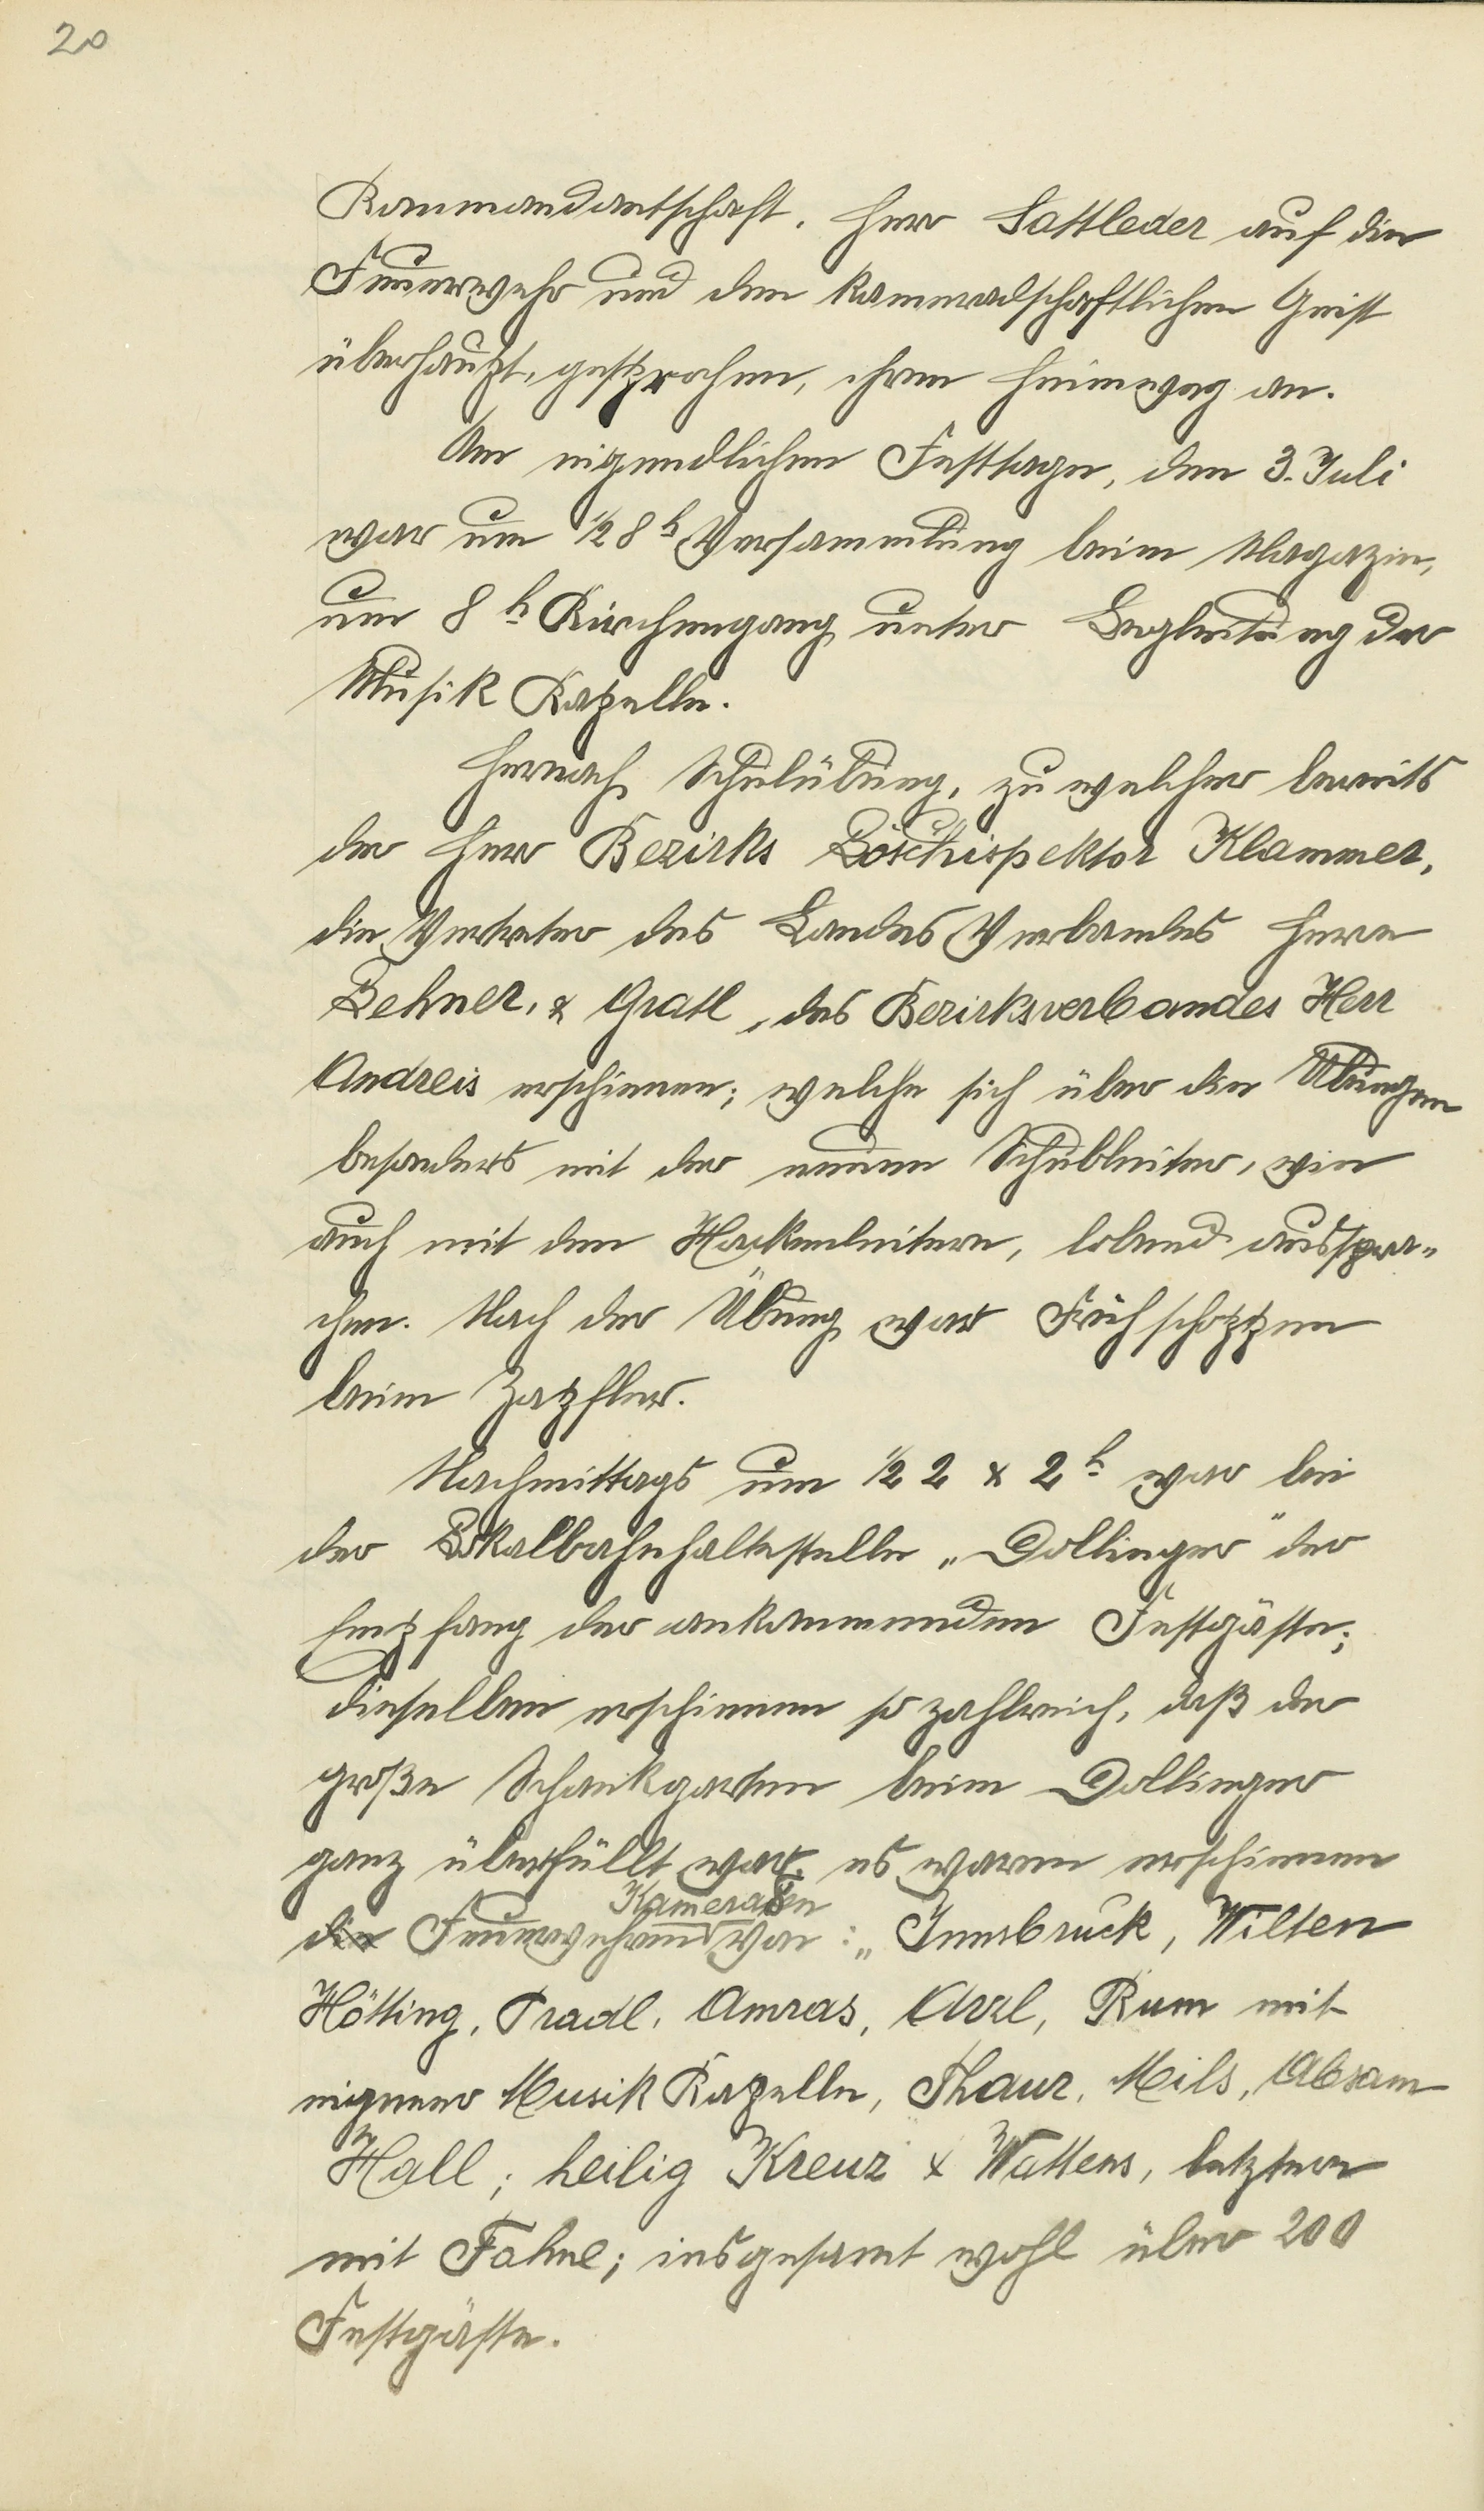 20
Kommandantschaft. Herr Sattleder auf die
Feuerwehr und den kameradschaftlichen Geist
überhaupt, gesprochen, ihren Heimweg an.
Am eigendlichen Festtage, den 3. Juli
war um ½ 8 h Versammlung beim Magazin,
um 8 h Kirchengang unter Begleitung der
Musik Kapelle.
Hernach Schulübung, zu welcher bereits
der Herr Bezirks Löschispektor Klammer,
die Vertreter des Landes Verbandes Herrn
Behner, & Gratl, des Bezirksverbandes Herr
Andreis erschienen; welche sich über die Übungen
besonders mit der neuen Schubleiter, wie
auch mit den Hackenleitern, lobend ausspra„
chen. Nach der Übung war Früh schoppen
beim Zapfler.
Nachmittags um ½ 2 & 2 h war bei
der Lokalbahnhaltestelle „Dollinger" der
Empfang der ankommenden Festgäste;
dieselben erschienen so zahlreich, daß der
große Schankgarten beim Dollinger
ganz überfüllt war. es waren erschienen
Kameraden
die Feuerwehren von: „Innsbruck, Wilten
Hötting, Pradl, Amras, Arzl, Rum mit
eigener Musik Kapelle, Thaur, Mils, Absam
Hall; heilig Kreuz & Wattens, letztere
mit Fahne; insgesamt wohl über 200
Festgäste.